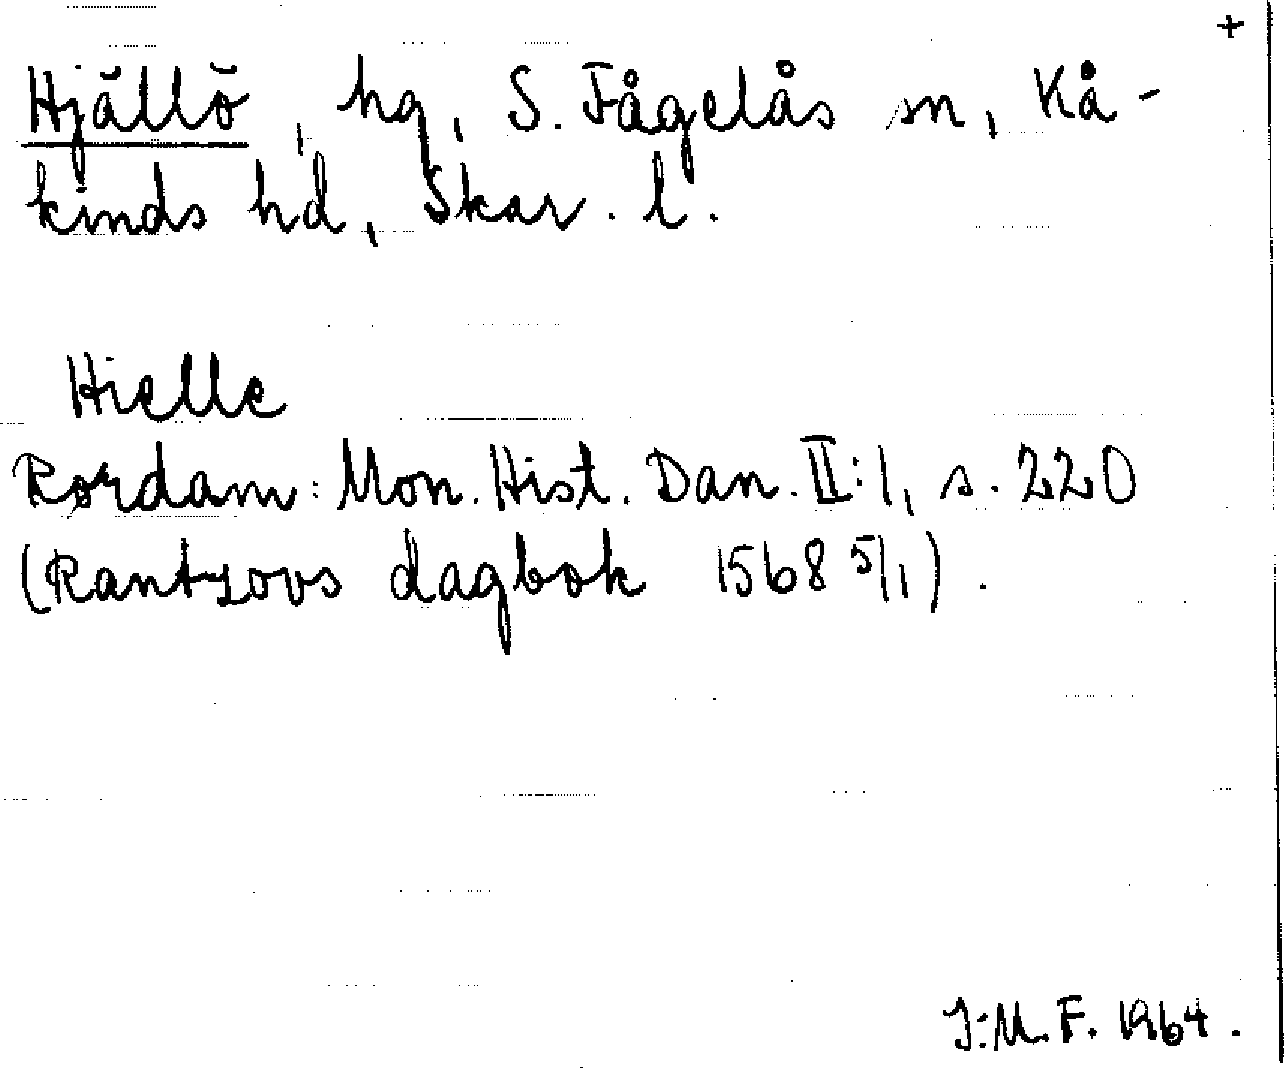 +
Hjällö, hg, S. Fågelås sn, Kå-
kinds hd, Skar. l.
Hielle
Rørdam: Mon. Hist. Dan. II:1, s. 220
(Rantzovs dagbok 1568 5/1).
I:M.F. 1964.